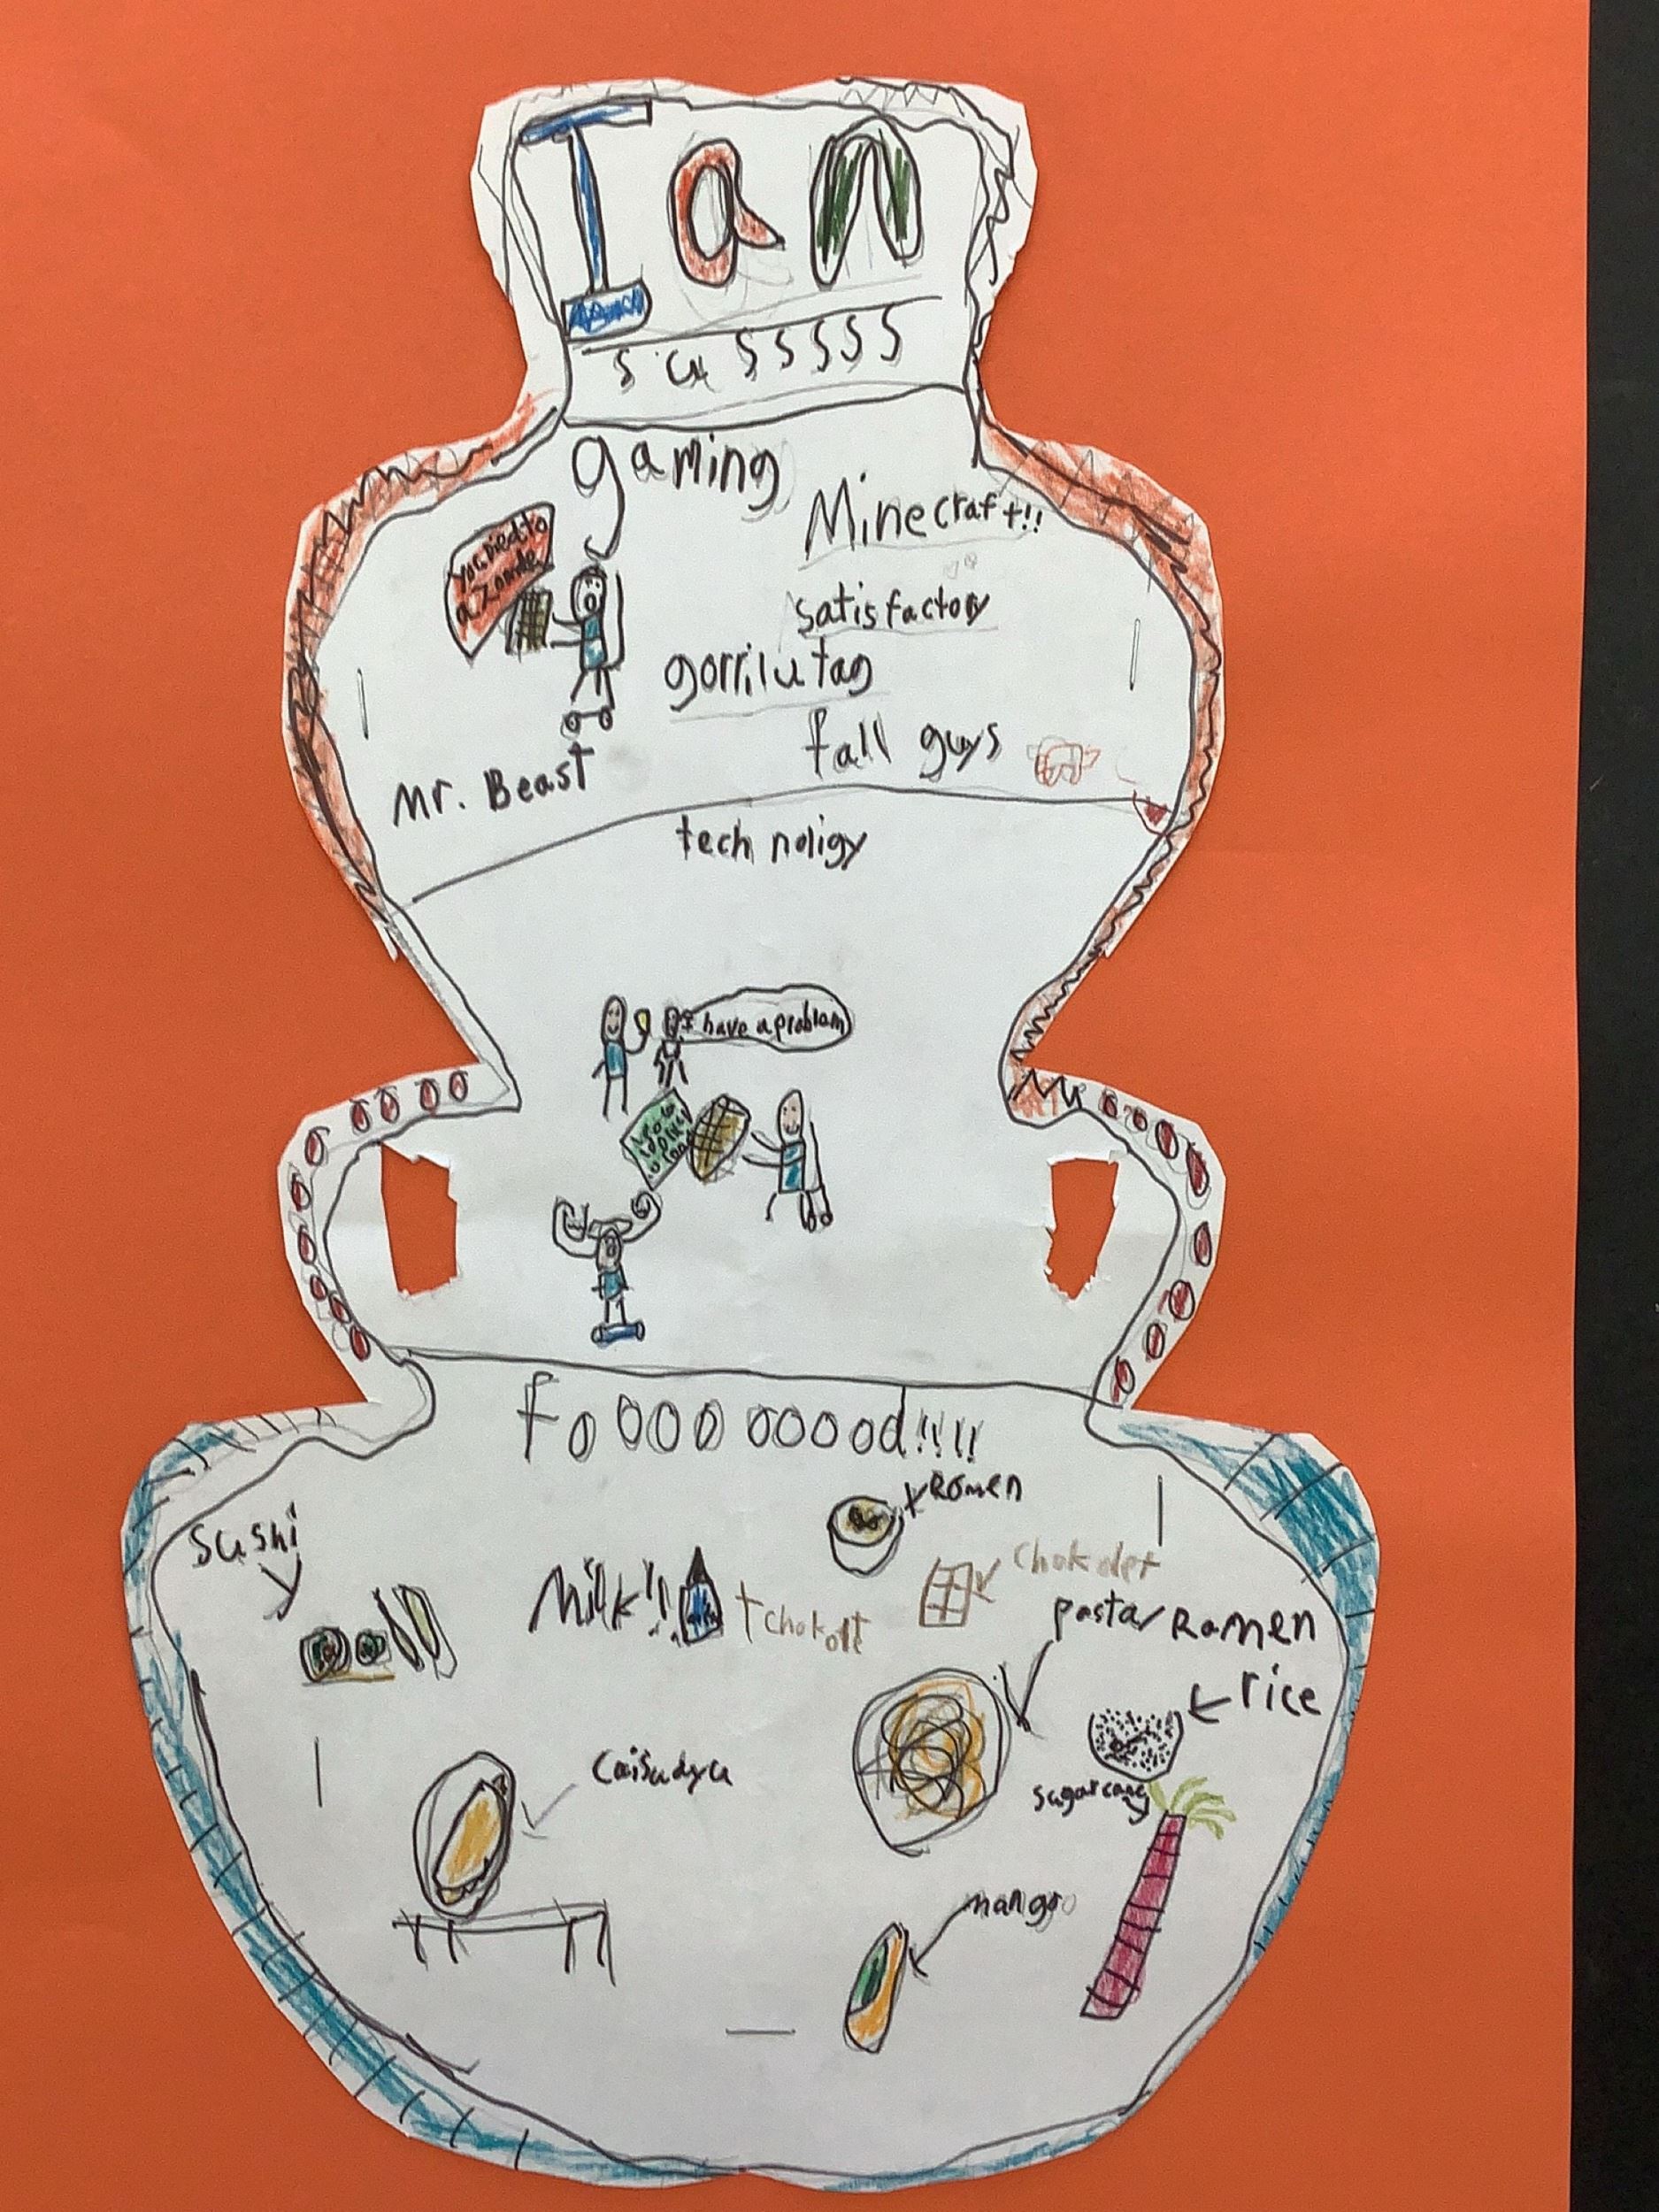 Ian
s u s s s s s
gaming
Minecraft!!
you died to
a zombie
satisfactory
gorrilu tag
fall guys
Mr. Beast
tech noligy
I have a problem
fo000 0000d!!!!
Romen
Sushi
Milk!!
+ chokolt
Chokolet
pasta/Ramen
rice
Caisadya
sugarcane
mango